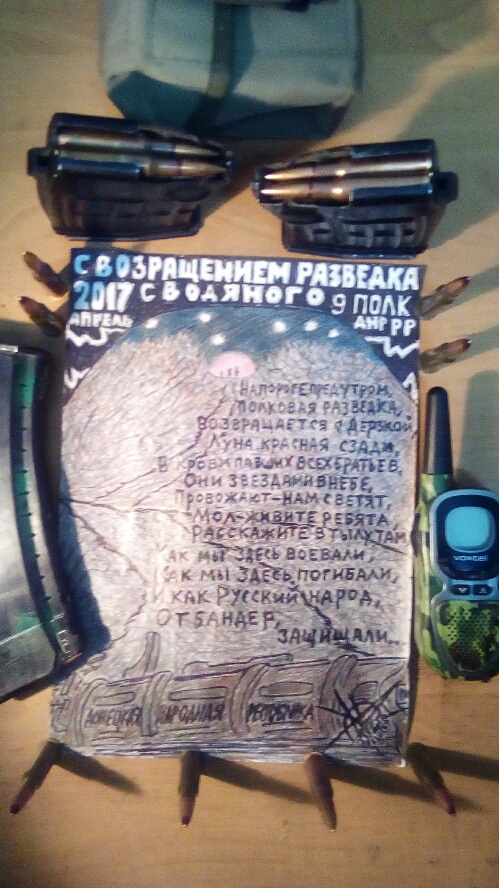 С ВОЗРАЩЕНИЕМ РАЗВЕДКА
2017 С ВОДЯНОГО 9 ПОЛК
АПРЕЛЬ ДНР РР
НА ПОРОГЕ ПРЕДУТРОМ,
ПОЛКОВАЯ РАЗВЕДКА,
ВОЗВРАЩАЕТСЯ С ДЕРЗКОЙ
ЛУНА КРАСНАЯ СЗАДИ,
В КРОВИ ПАВШИХ ВСЕХ БРАТЬЕВ,
ОНИ ЗВЕЗДАМИ В НЕБЕ,
ПРОВОЖАЮТ-НАМ СВЕТЯТ,
МОЛ-ЖИВИТЕ РЕБЯТА,
РАССКАЖИТЕ В ТЫЛУ ТАМ
КАК МЫ ЗДЕСЬ ВОЕВАЛИ,
КАК МЫ ЗДЕСЬ ПОГИБАЛИ,
И КАК РУССКИЙ НАРОД,
ОТ БАНДЕР,
ЗАЩИЩАЛИ...
ДОНЕЦКАЯ НАРОДНАЯ РЕСПУБЛИКА
VOXTEL